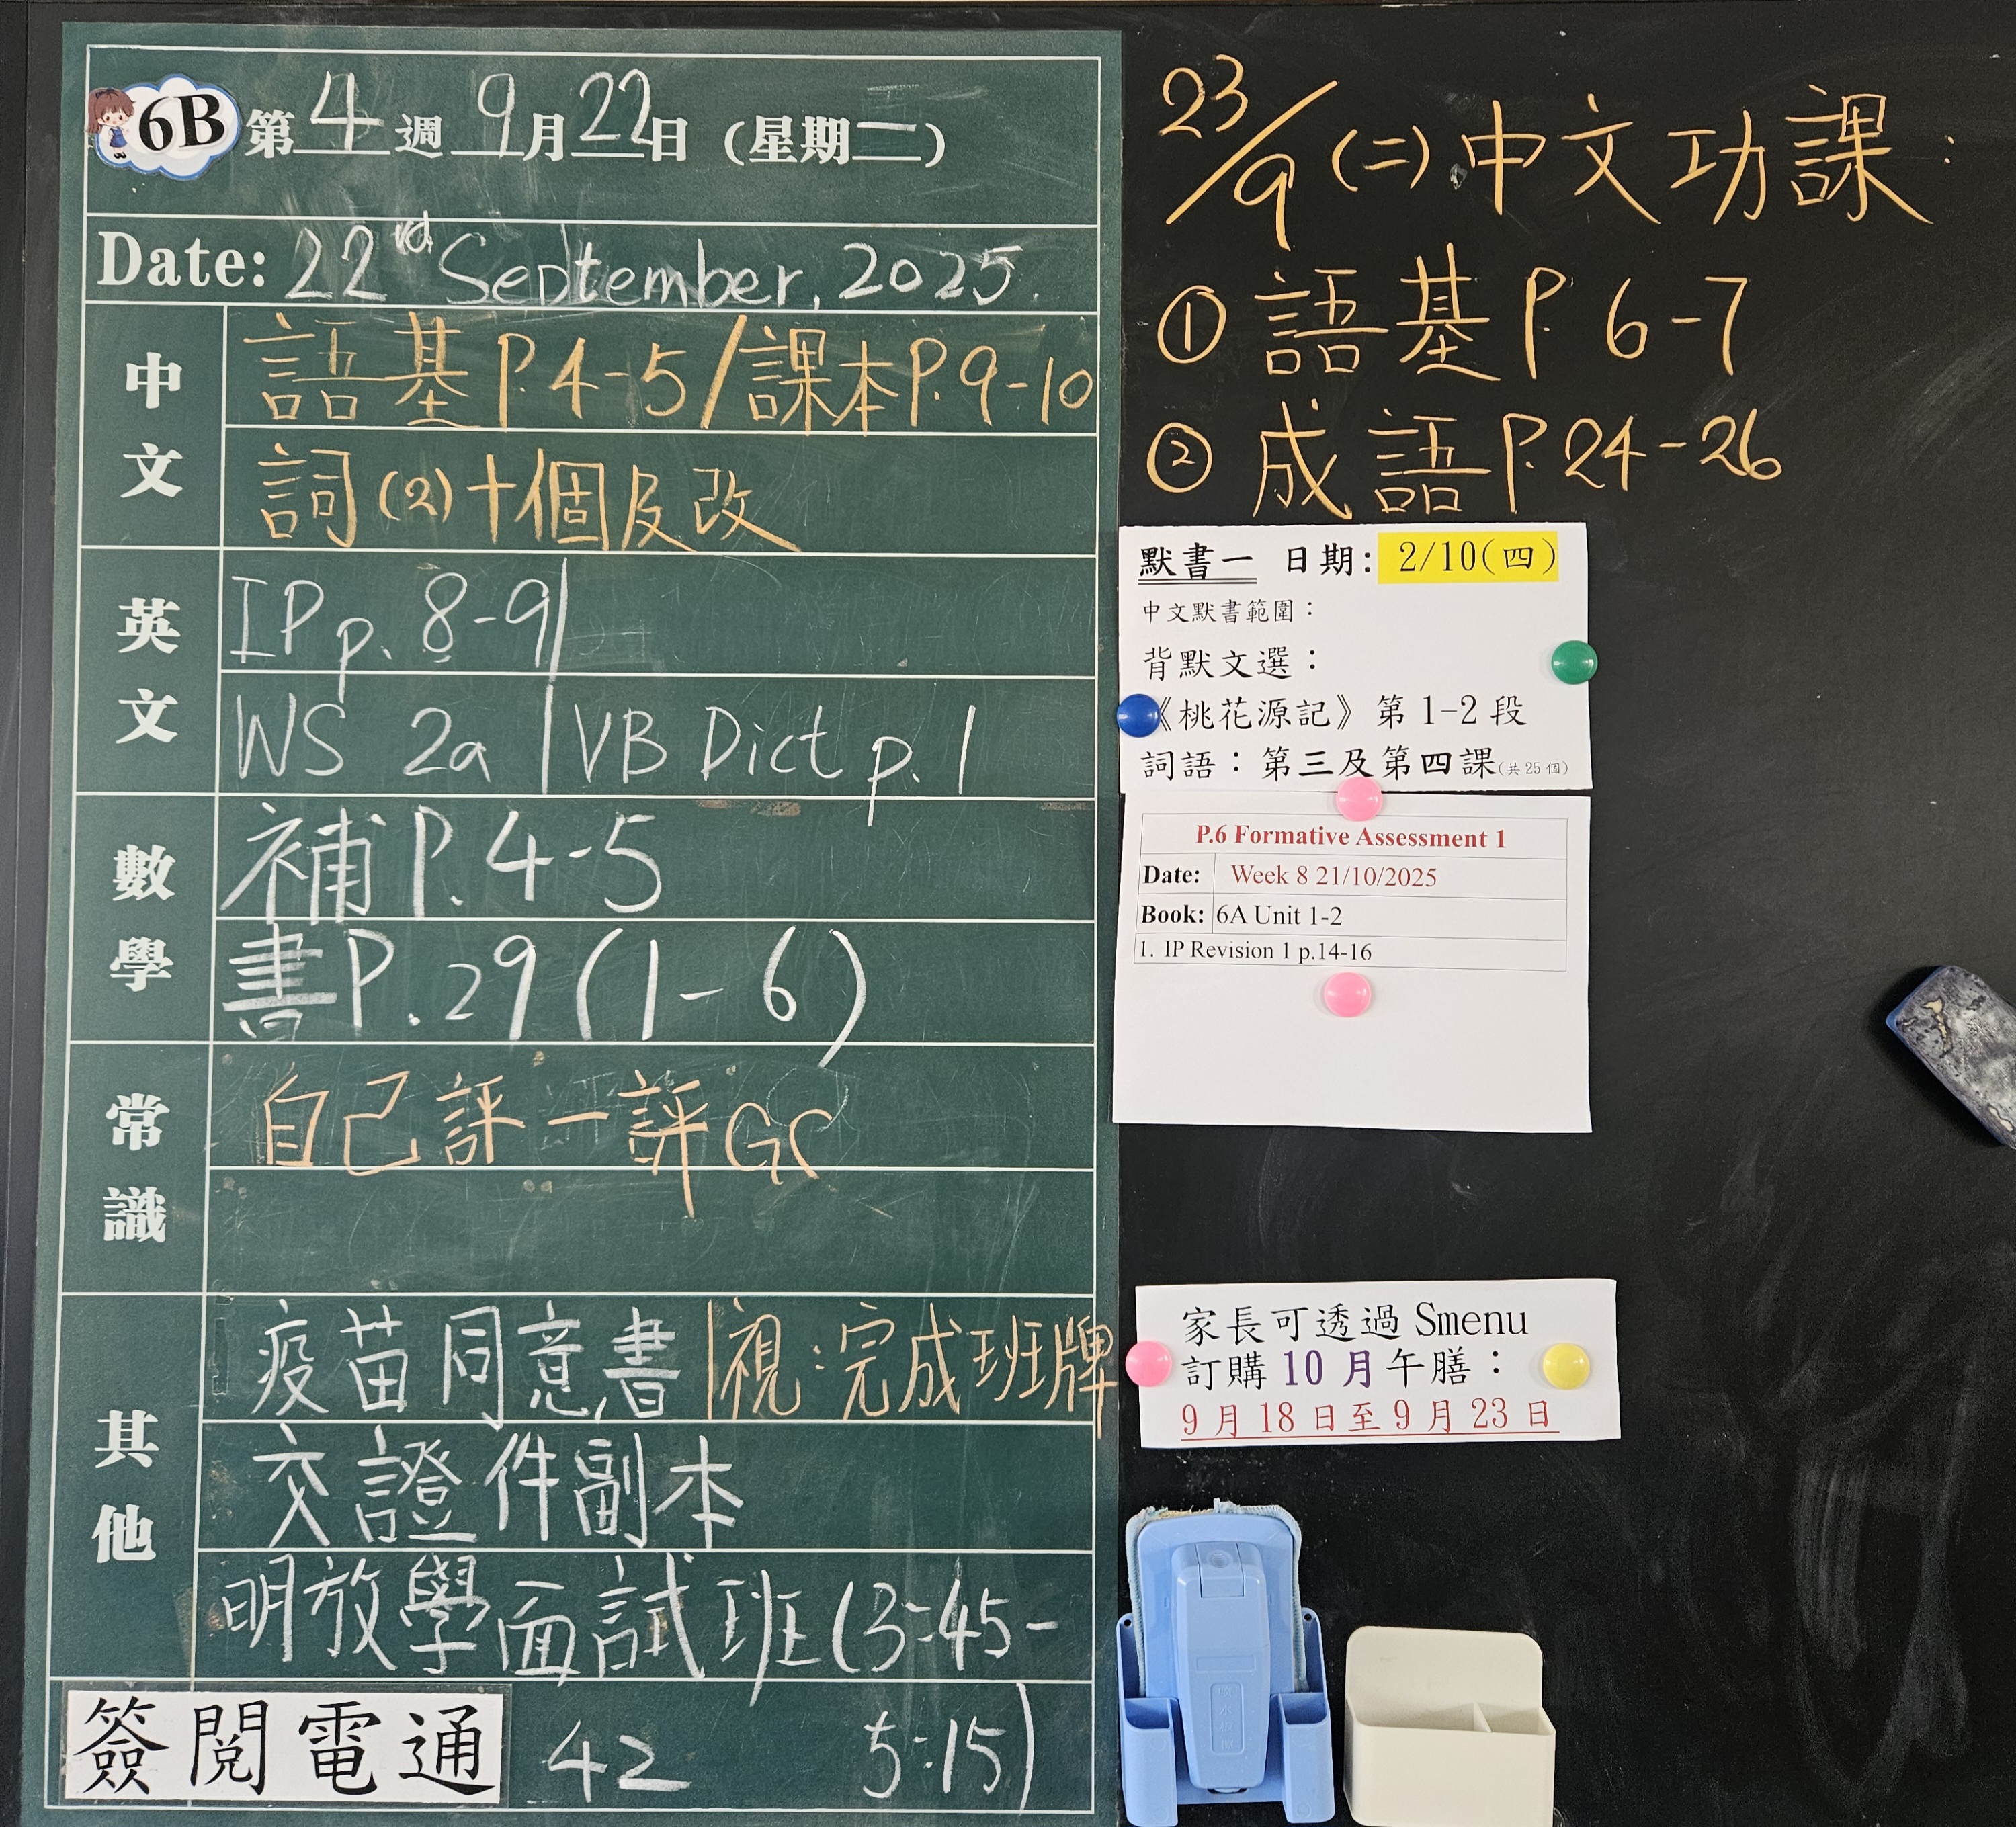 6B 第4週 9月22日 (星期二)
Date: 22rd September, 2025.
中文
語基P.4-5/課本P.9-10
詞(2)十個及改
英文
IP p. 8-9|
WS 2a | VB Dict p. 1
數學
補P.4-5
書P.29(1-6)
常識
自己評一評GC
其他
疫苗同意書|視:完成班牌
交證件副本
明放學面試班(3:45-
5:15)
簽閱電通 42
23/9(二)中文功課:
① 語基P. 6-7
② 成語P.24-26
默書一 日期: 2/10(四)
中文默書範圍：
背默文選：
《桃花源記》第 1-2 段
詞語：第三及第四課(共 25 個)
P.6 Formative Assessment 1
Date: Week 8 21/10/2025
Book: 6A Unit 1-2
1. IP Revision 1 p.14-16
家長可透過 Smenu
訂購 10 月午膳：
9 月 18 日至 9 月 23 日